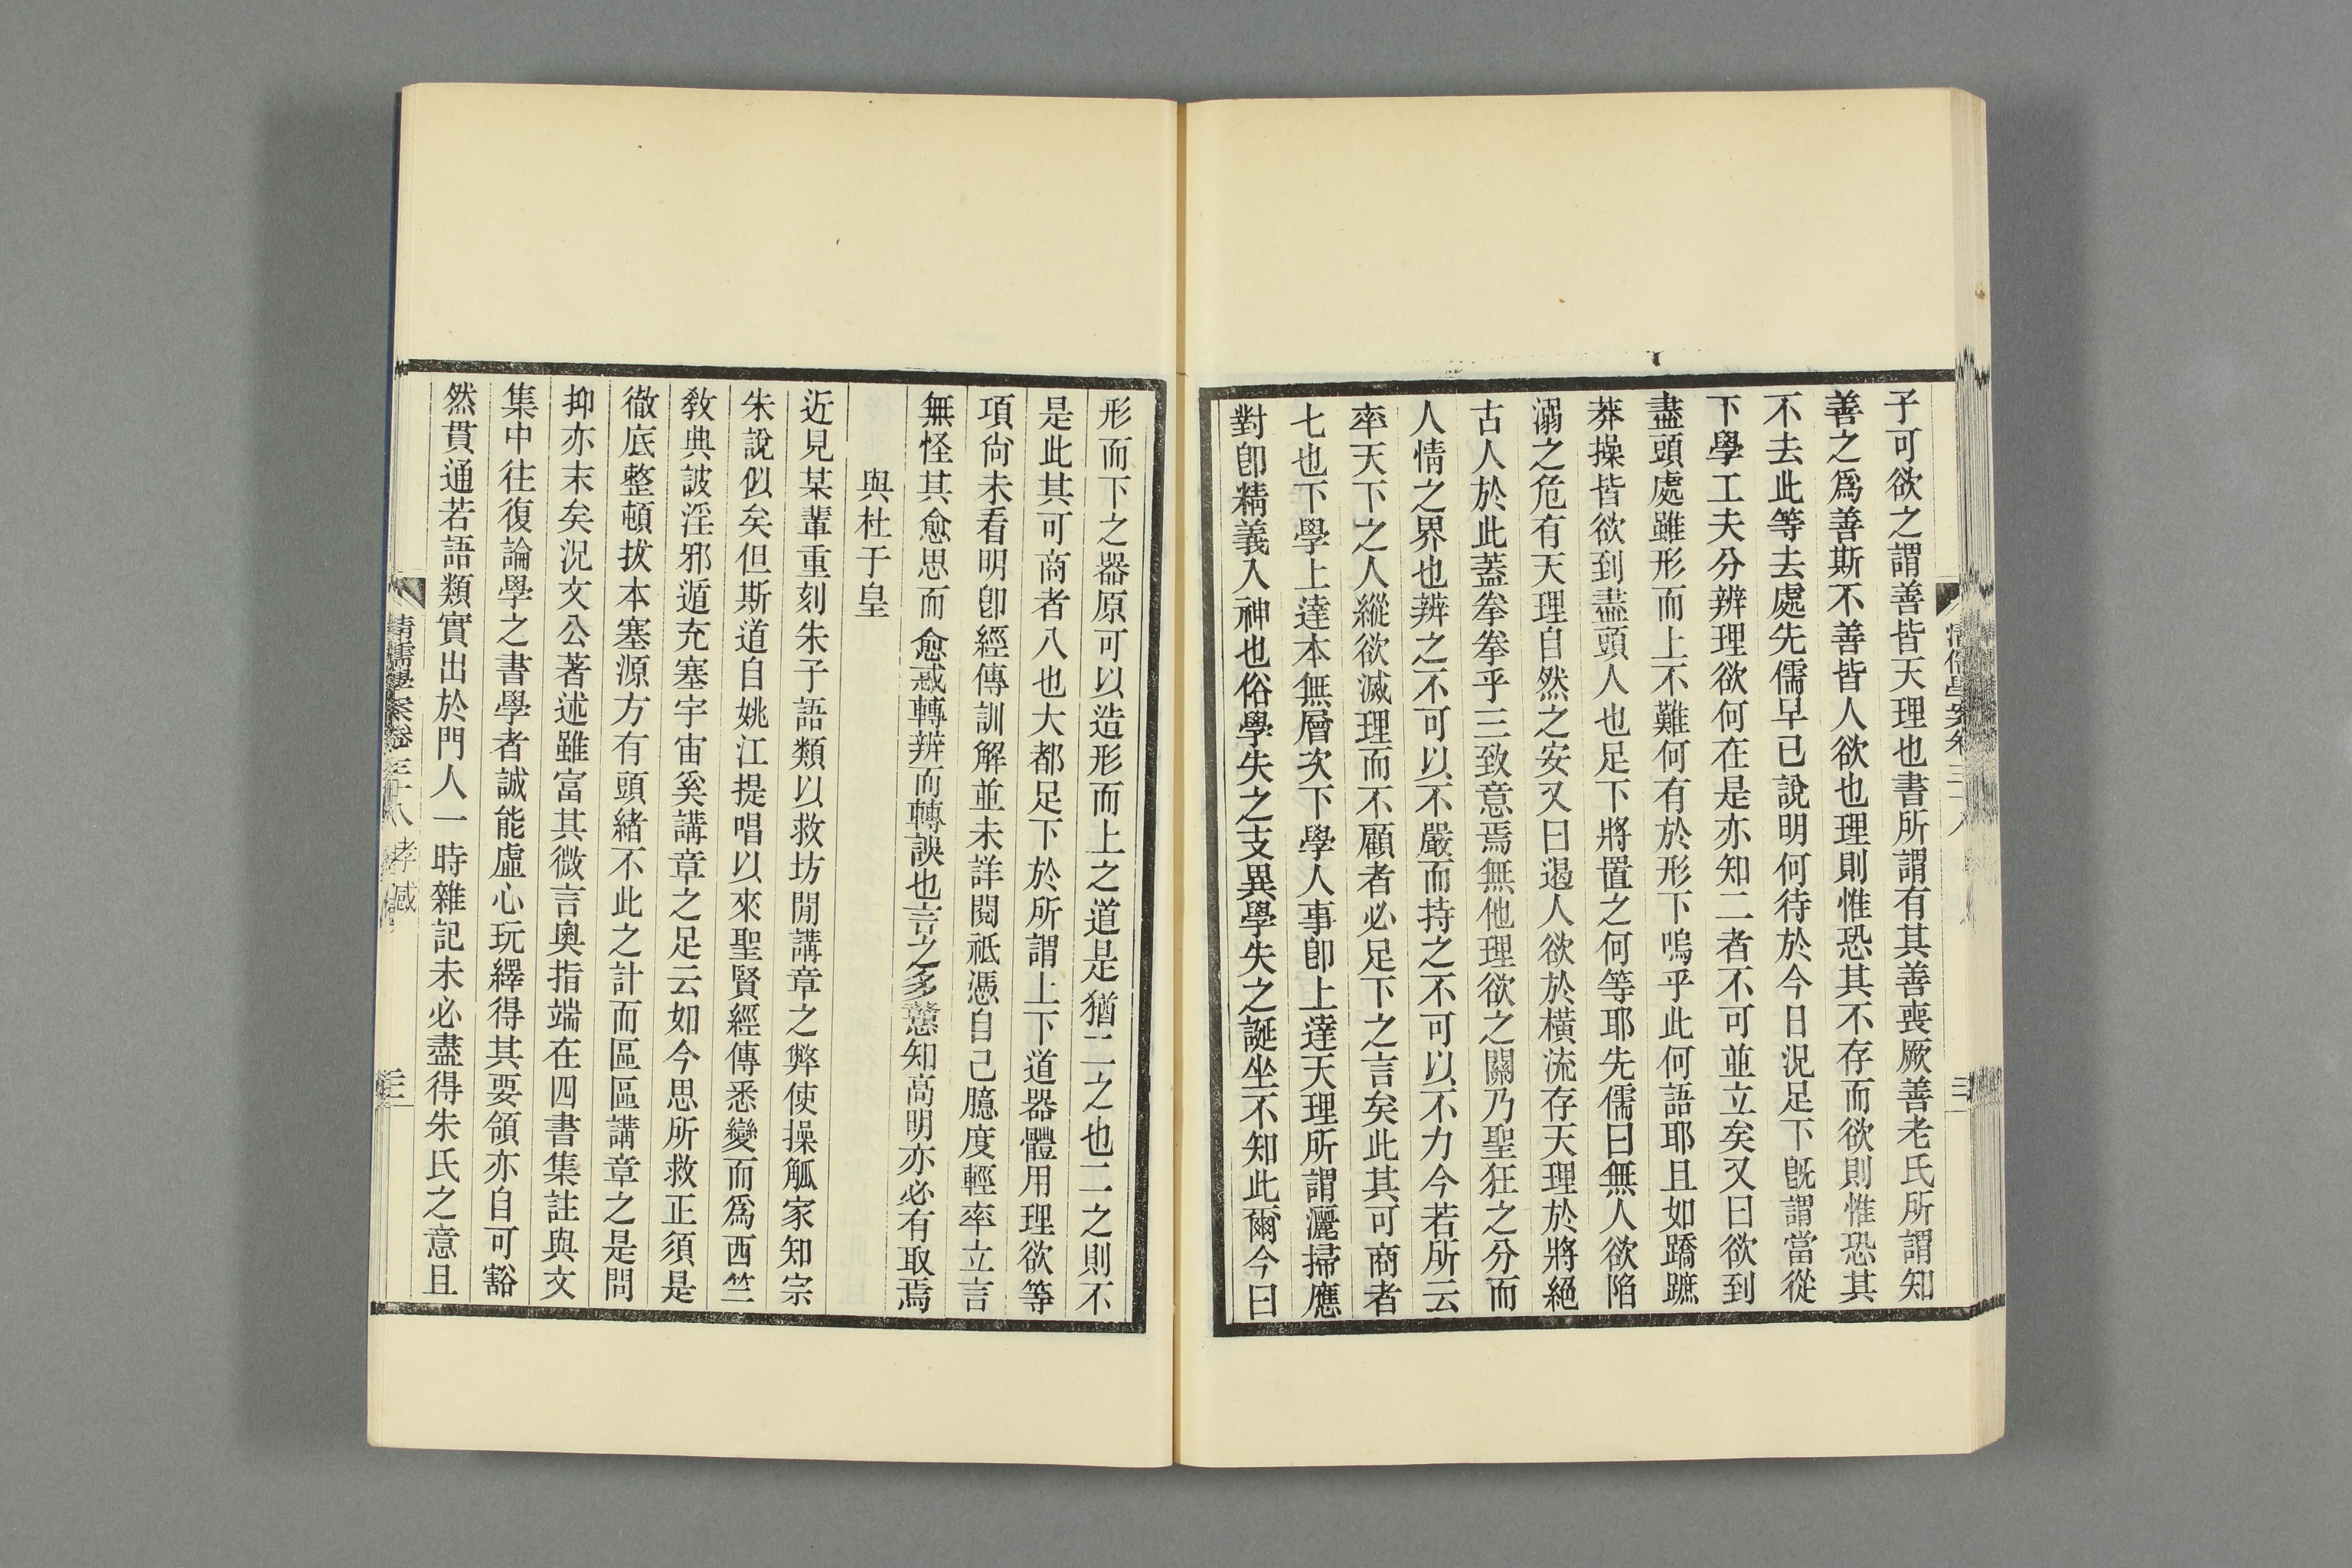 子可欲之謂善皆天理也書所謂有其善喪厥善老氏所謂知
善之爲善斯不善皆人欲也理則惟恐其不存而欲則惟恐其
不去此等去處先儒早已說明何待於今日況足下旣謂當從
下學工夫分辨理欲何在是亦知二者不可並立矣又曰欲到
盡頭處雖形而上不難何有於形下嗚乎此何語耶且如蹻蹠
莽操皆欲到盡頭人也足下將置之何等耶先儒曰無人欲陷
溺之危有天理自然之安又曰遏人欲於橫流存天理於將絕
古人於此蓋拳拳乎三致意焉無他理欲之關乃聖狂之分而
人情之界也辨之不可以不嚴而持之不可以不力今若所云
率天下之人縱欲滅理而不顧者必足下之言矣此其可商者
七也下學上達本無層次下學人事卽上達天理所謂灑掃應
對卽精義入神也俗學失之支異學失之誕坐不知此爾今曰
形而下之器原可以造形而上之道是猶二之也二之則不
是此其可商者八也大都足下於所謂上下道器體用理欲等
項尙未看明卽經傳訓解並未詳閱祗憑自己臆度輕率立言
無怪其愈思而愈惑轉辨而轉誤也言之多戇知高明亦必有取焉
與杜于皇
近見某輩重刻朱子語類以救坊閒講章之弊使操觚家知宗
朱說似矣但斯道自姚江提唱以來聖賢經傳悉變而爲西竺
敎典詖淫邪遁充塞宇宙奚講章之足云如今思所救正須是
徹底整頓拔本塞源方有頭緒不此之計而區區講章之是問
抑亦末矣況文公著述雖富其微言奧指端在四書集註與文
集中往復論學之書學者誠能虛心玩繹得其要領亦自可豁
然貫通若語類實出於門人一時雜記未必盡得朱氏之意且
清儒學案卷三十八 孝感